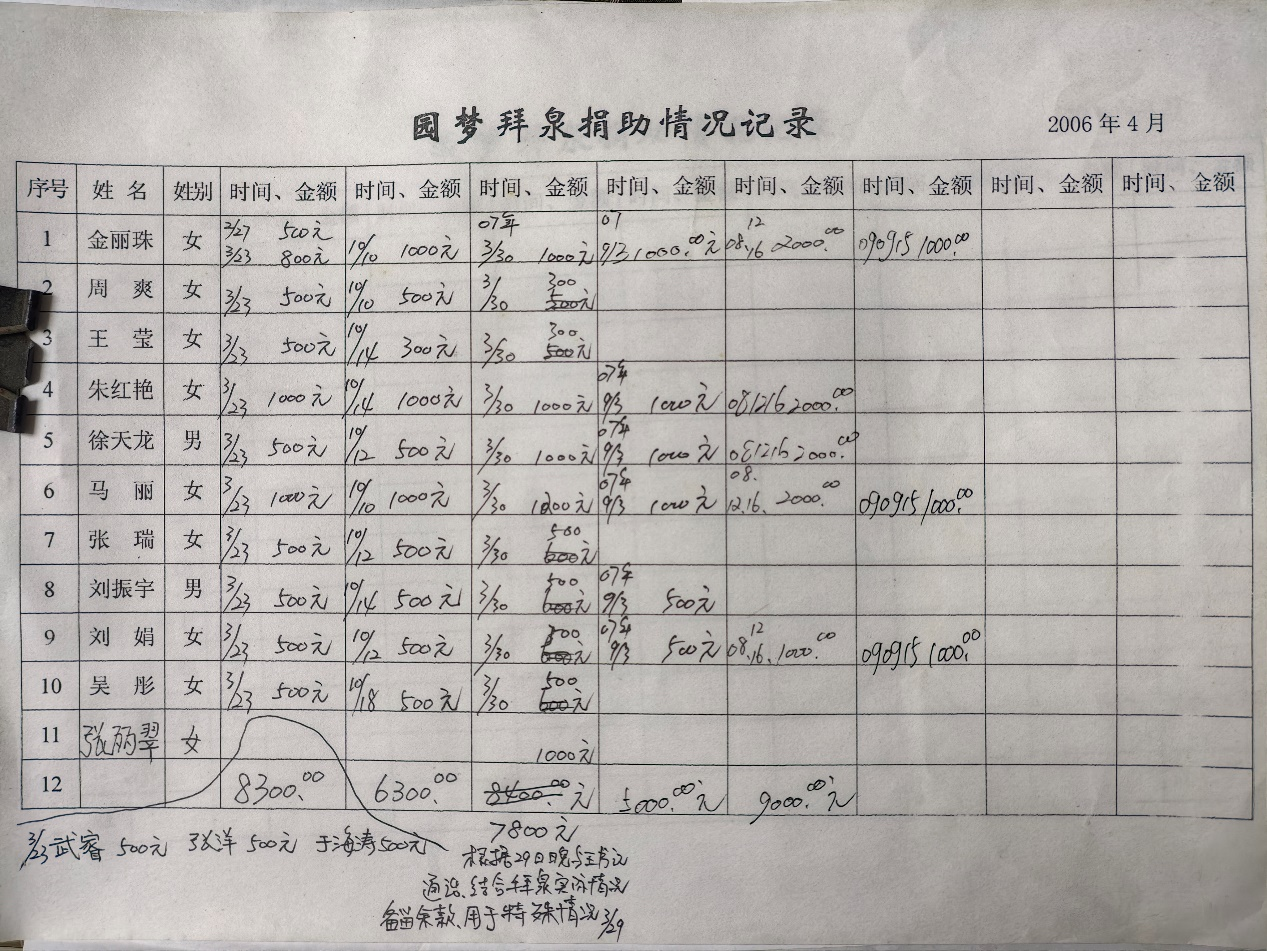 园梦拜泉捐助情况记录
2006 年 4 月
序号 姓 名 姓别 时间、金额 时间、金额 时间、金额 时间、金额 时间、金额 时间、金额 时间、金额 时间、金额
2/27 500元 07年 07 12
1 金丽珠 女 3/23 800元 10/10 1000元 3/30 1000元 9/3 1000.00元 08. 16 2000.00 090915 1000.00
300
2 周 爽 女 3/23 500元 10/10 500元 3/30 500元
300
3 王 莹 女 3/23 500元 10/14 300元 3/30 500元
07年
4 朱红艳 女 3/23 1000元 10/14 1000元 3/30 1000元 9/3 1000元 081216 2000.00
07年
5 徐天龙 男 3/23 500元 10/12 500元 3/30 1000元 9/3 1000元 081216 2000.00
07年 08.
6 马 丽 女 3/23 1000元 10/10 1000元 3/30 1200元 9/3 1000元 12.16. 2000.00 090915 1000.00
500
7 张 瑞 女 3/23 500元 10/12 500元 3/30 600元
500 07年
8 刘振宇 男 3/23 500元 10/14 500元 3/30 600元 9/3 500元
300 07年 12
9 刘 娟 女 3/23 500元 10/12 500元 3/30 600元 9/3 500元 08. 16. 1000.00 090915 1000.00
500
10 吴 彤 女 3/23 500元 10/18 500元 3/30 600元
11 张丽翠 女 1000元
12 8300.00 6300.00 8400.00元 5000.00元 9000.00元
7800元
3/23 武睿 500元 张洋 500元 于海涛500元
根据29日晚与王书记
通话、结合拜泉实际情况
备留余款、用于特殊情况 3/29